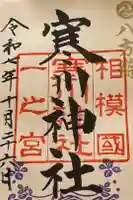 八方除
相模國
寒川神社
一之宮
令和七年十月二十六日